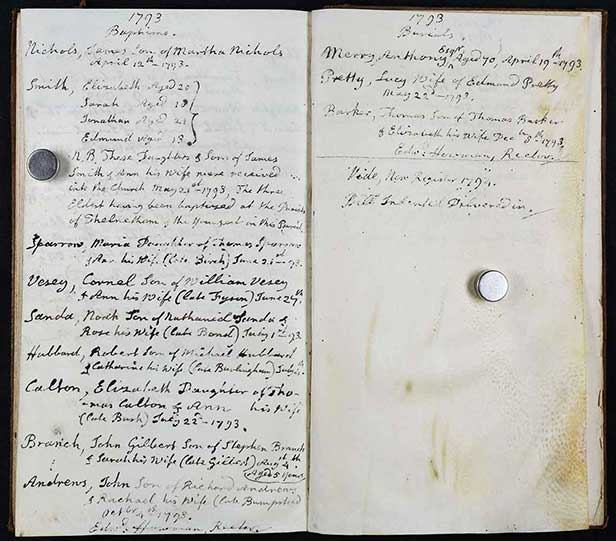 1793
Baptisms.
Nichols, James Son of Martha Nichols
April 12th 1793.
Smith, Elizabeth Aged 20
Sarah Aged 18
Jonathan Aged 21
Edmund Aged 13
N.B. These Daughters & Sons of James
Smith & Ann his Wife were received
into the Church May 20th 1793. The three
Eldest having been baptized at the Parish
of Thelnetham & the Youngest in this Parish.
Sparrow, Maria Daughter of Thomas Sparrow
& his Wife (late Birch) June
Vesey, Cornel Son of William Vesey
& Ann his Wife (late Fyson) June
Sanda, North Son of Nathaniel Sanda &
Rose his Wife (late Bond) July 1st 93
Hubbard, Robert Son of Michael Hubbard
& Catharine his Wife (late Burlingham) July
Calton, Elizabeth Daughter of Tho-
-mas Calton & Ann his Wife
(late Bush) July 22d 1793.
Branch, John Gilbert Son of Stephen Branch
& Sarah his Wife (late Gilbert) Augst 4th
Aged 5 Years
Andrews, John Son of Richard Andrews
& Rachael his Wife (late Bumpstead
Octbr 4th 1793.
Edwd Howman, Rector.
1793
Burials.
Merry, Anthony Esqr Aged 70, April 19th 1793.
Pretty, Lucy Wife of Edmund Pretty
May 22d 1793.
Barker, Thomas Son of Thomas Barker
& Elizabeth his Wife Decbr 8th 1793
Edwd Howman, Rector
Vide, New Register 1794.
Bill Indented Delivered in.